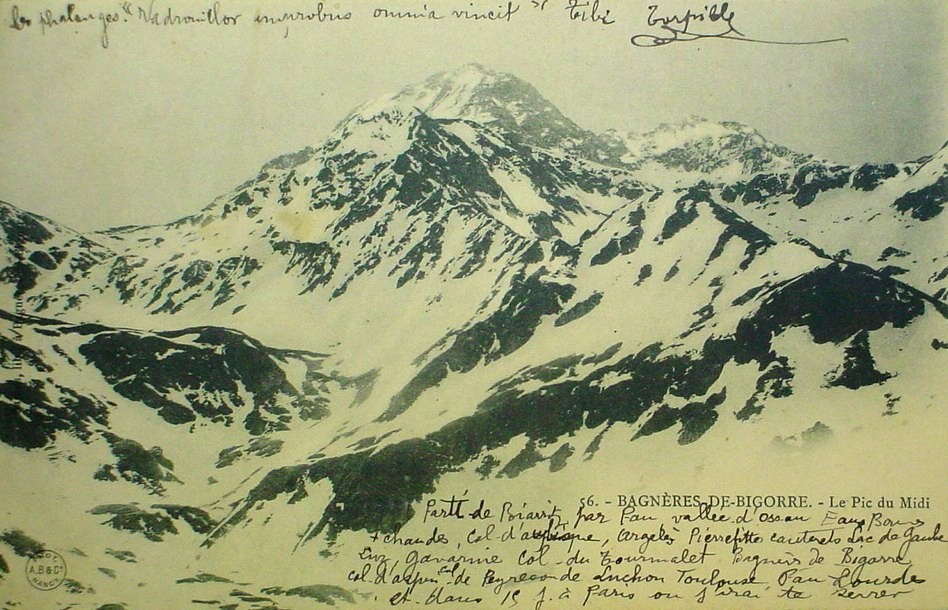 les phalanges." Vadrouillor improbus omnia vincit " Tibi Torpille
56. - BAGNÈRES-DE-BIGORRE. - Le Pic du Midi
Parti de Biarritz par Pau vallée d'Ossau Eaux Bonnes
+ chaudes, Col d'aubisque, Argelès Pierrefitte cauterets Lac de Gaube
Luz, Gavarnie Col du Tourmalet Bagnères de Bigorre,
col d'aspin col de Peyresourde Luchon Toulouse Pau Lourdes
et dans 15 j. à Paris où j'irai te serrer
A.B & Cie
NANCY